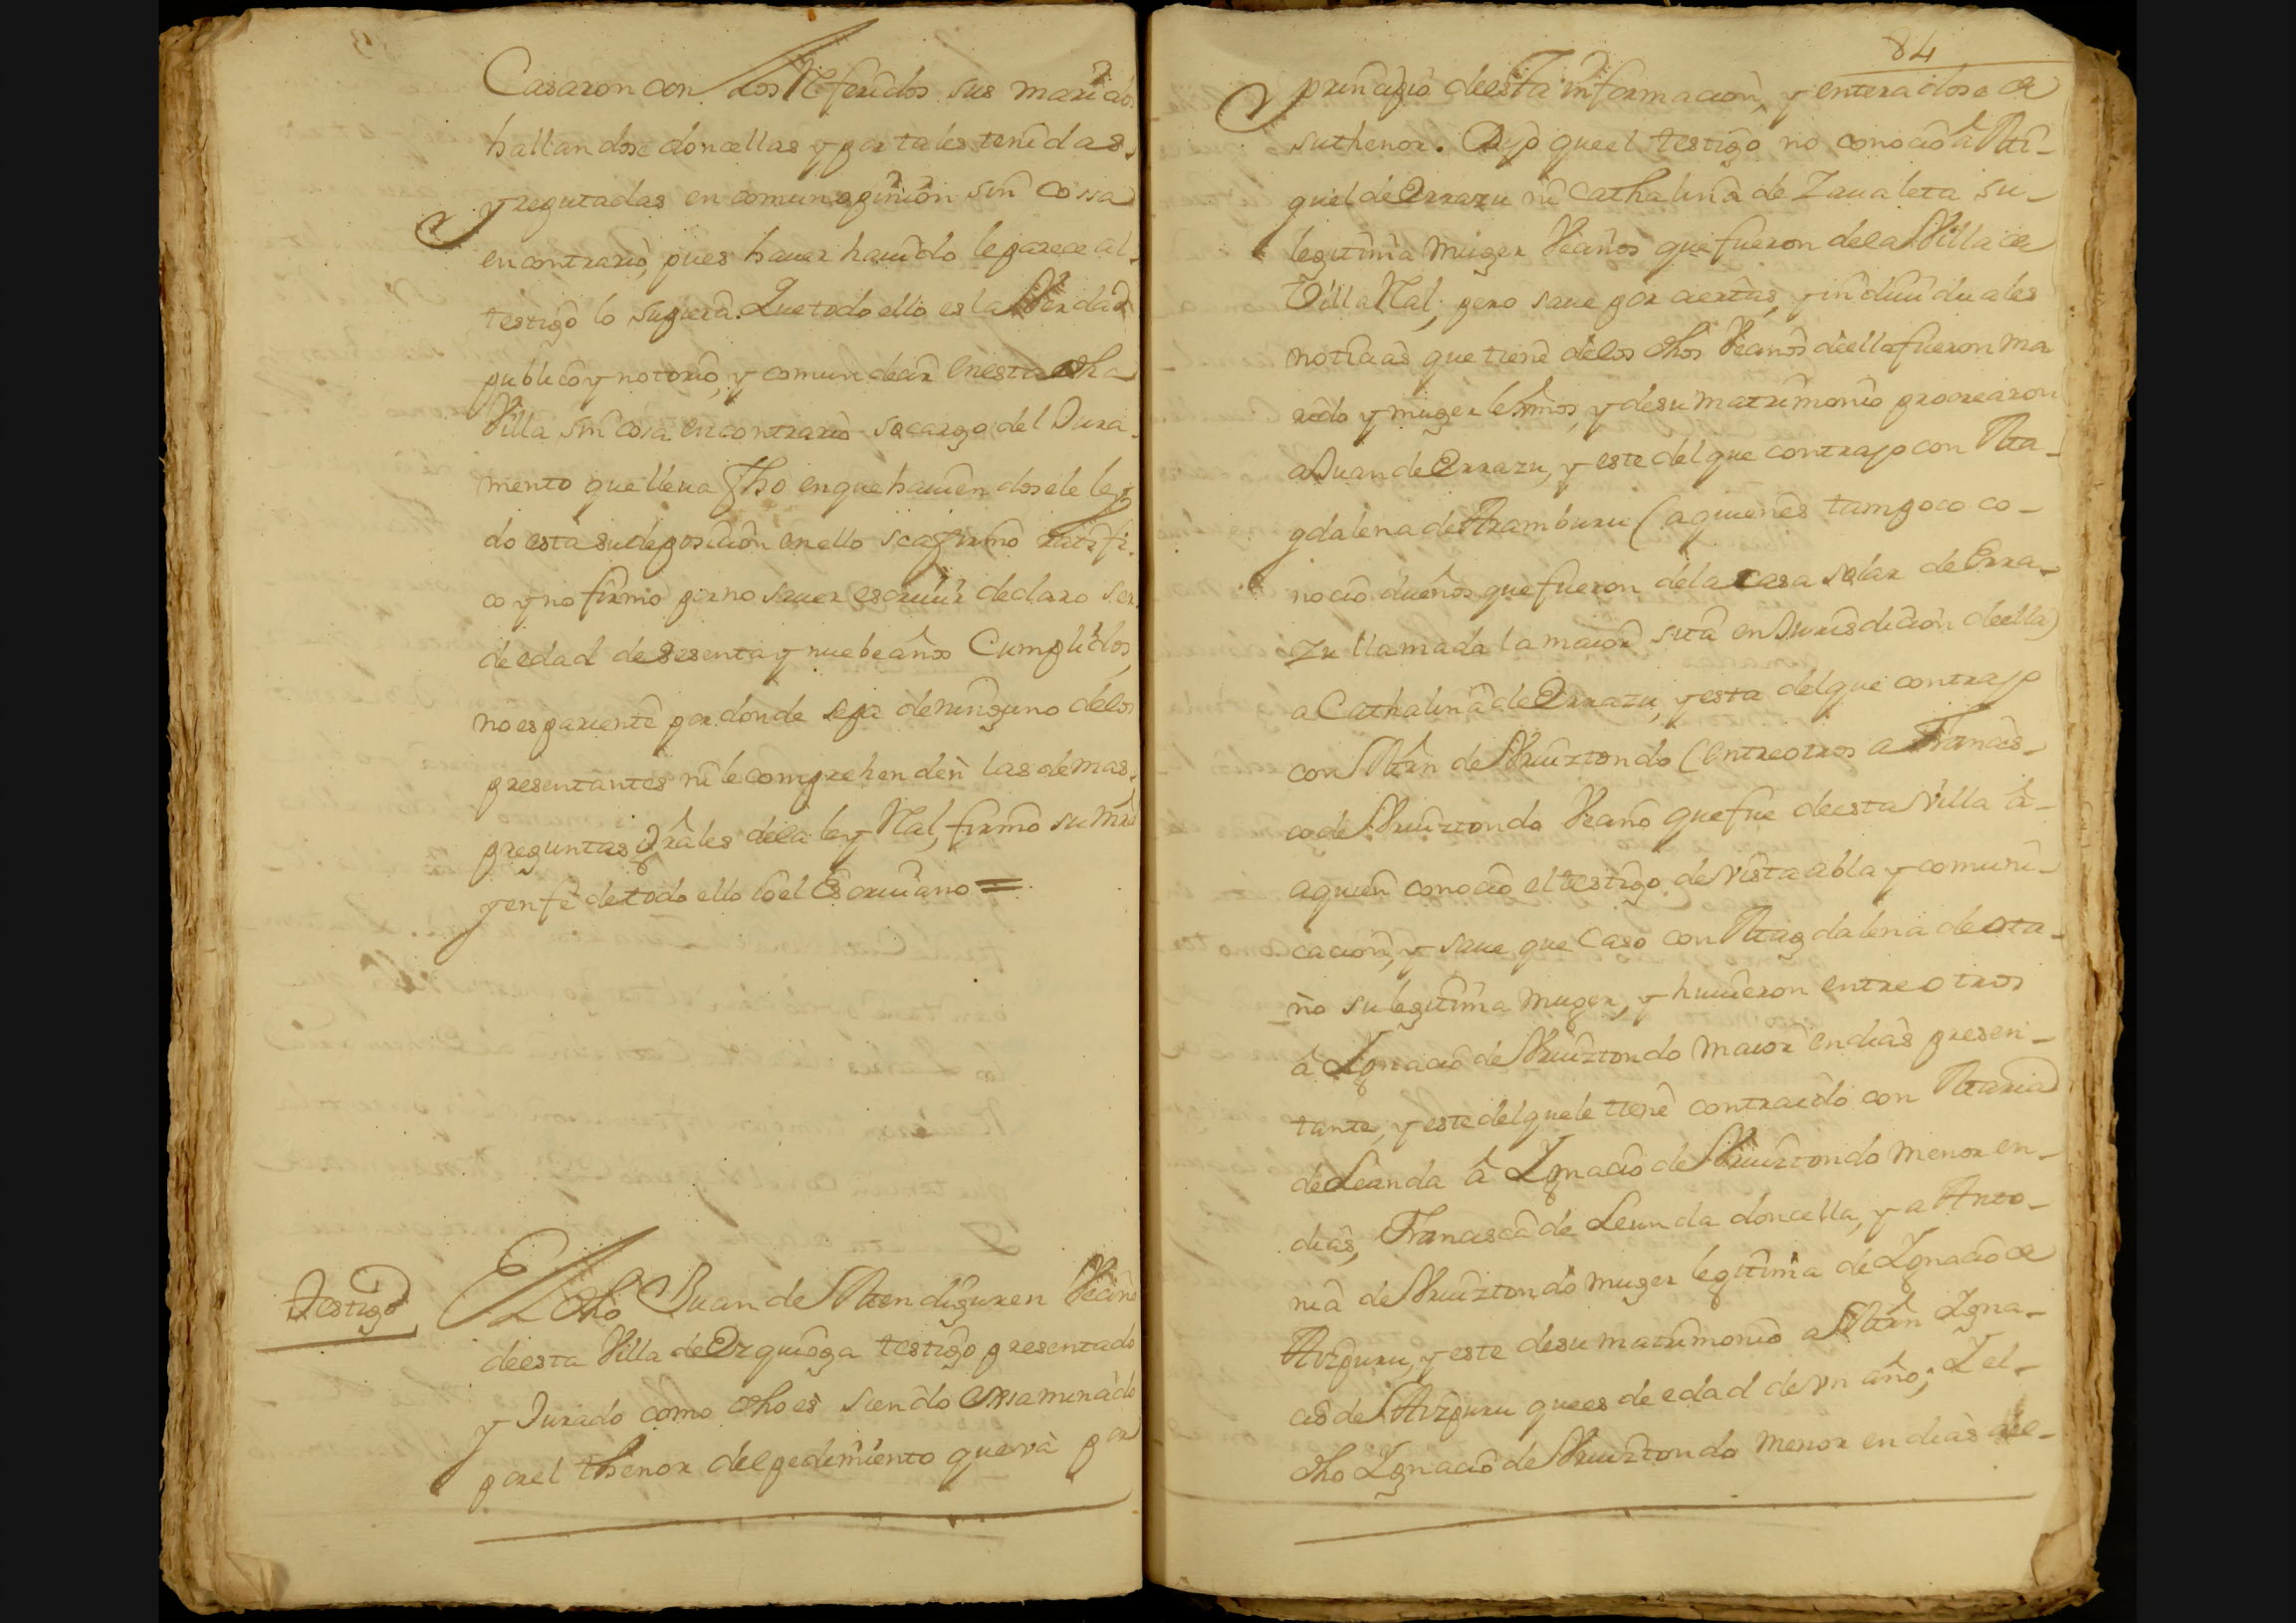 Casaron con Los Referidos sus maridos
hallandose doncellas y por tales tenidas,
y reputadas en comun opinion sin cossa
en contrario, pues haver havido le parece al
testigo lo supiera. Que todo ello es la Verdad
publico y notorio, y comun decir en esta dha
Villa sin cosa en contrario so cargo del Jura-
mento que lleva fho en que haviendosele ley-
do esta su deposicion en ello se afirmo ratifi-
co y no firmo por no saver escrivir declaro ser
de edad de sesenta y nuebe años Cumplidos,
no es pariente por donde sepa de ninguno de los
presentantes ni le comprehenden las demas
preguntas Grales de la ley Real, firmo su Mrd
y en fe de todo ello Yo el Escrivano =
Testigo
El dho Juan de Mendiguren Vecino
de esta Villa de Urquioga testigo presentado
y Jurado como dho es siendo examinado
por el thenor del pedimiento que va por
84
principio de esta informacion, y enteradose de
su thenor. Dijo que el testigo no conocio â Mi-
guel de Errazu ni Cathalina de Zavaleta su
legitima muger Vecinos que fueron de la Villa de
Villa Real, pero save por ciertas, y individuales
noticias que tiene de los dhos Vecinos de ella fueron ma
rido y muger lexmos, y de su matrimonio procrearon
a Juan de Errazu, y este del que contrajo con Ma-
gdalena de Aramburu (a quienes tampoco co-
nocio dueños que fueron de la casa solar de Erra-
zu llamada la maior sita en Jurisdicion de ella)
a Cathalina de Errazu, y esta del que contrajo
con Mrn de Aruiztondo (entre otros a Francis-
co de Aruiztondo Vecino que fue de esta Villa â
a quien conocio el testigo de vista abla y comuni-
cacion, y save que Caso con Magdalena de Ota-
ño su legitima muger, y huuieron entre otros
â Ygnacio de Aruiztondo maior en dias presen-
tante, y este del que le tiene contraido con Maria
de Leunda â Ygnacio de Aruiztondo menor en
dias, Francisca de Leunda doncella, y a Anto-
nia de Aruiztondo muger legitima de Ygnacio de
Aizpuru, y este de su matrimonio a Mrn Ygna-
cio de Aizpuru que es de edad de un año; Y el
dho Ygnacio de Aruiztondo menor en dias del